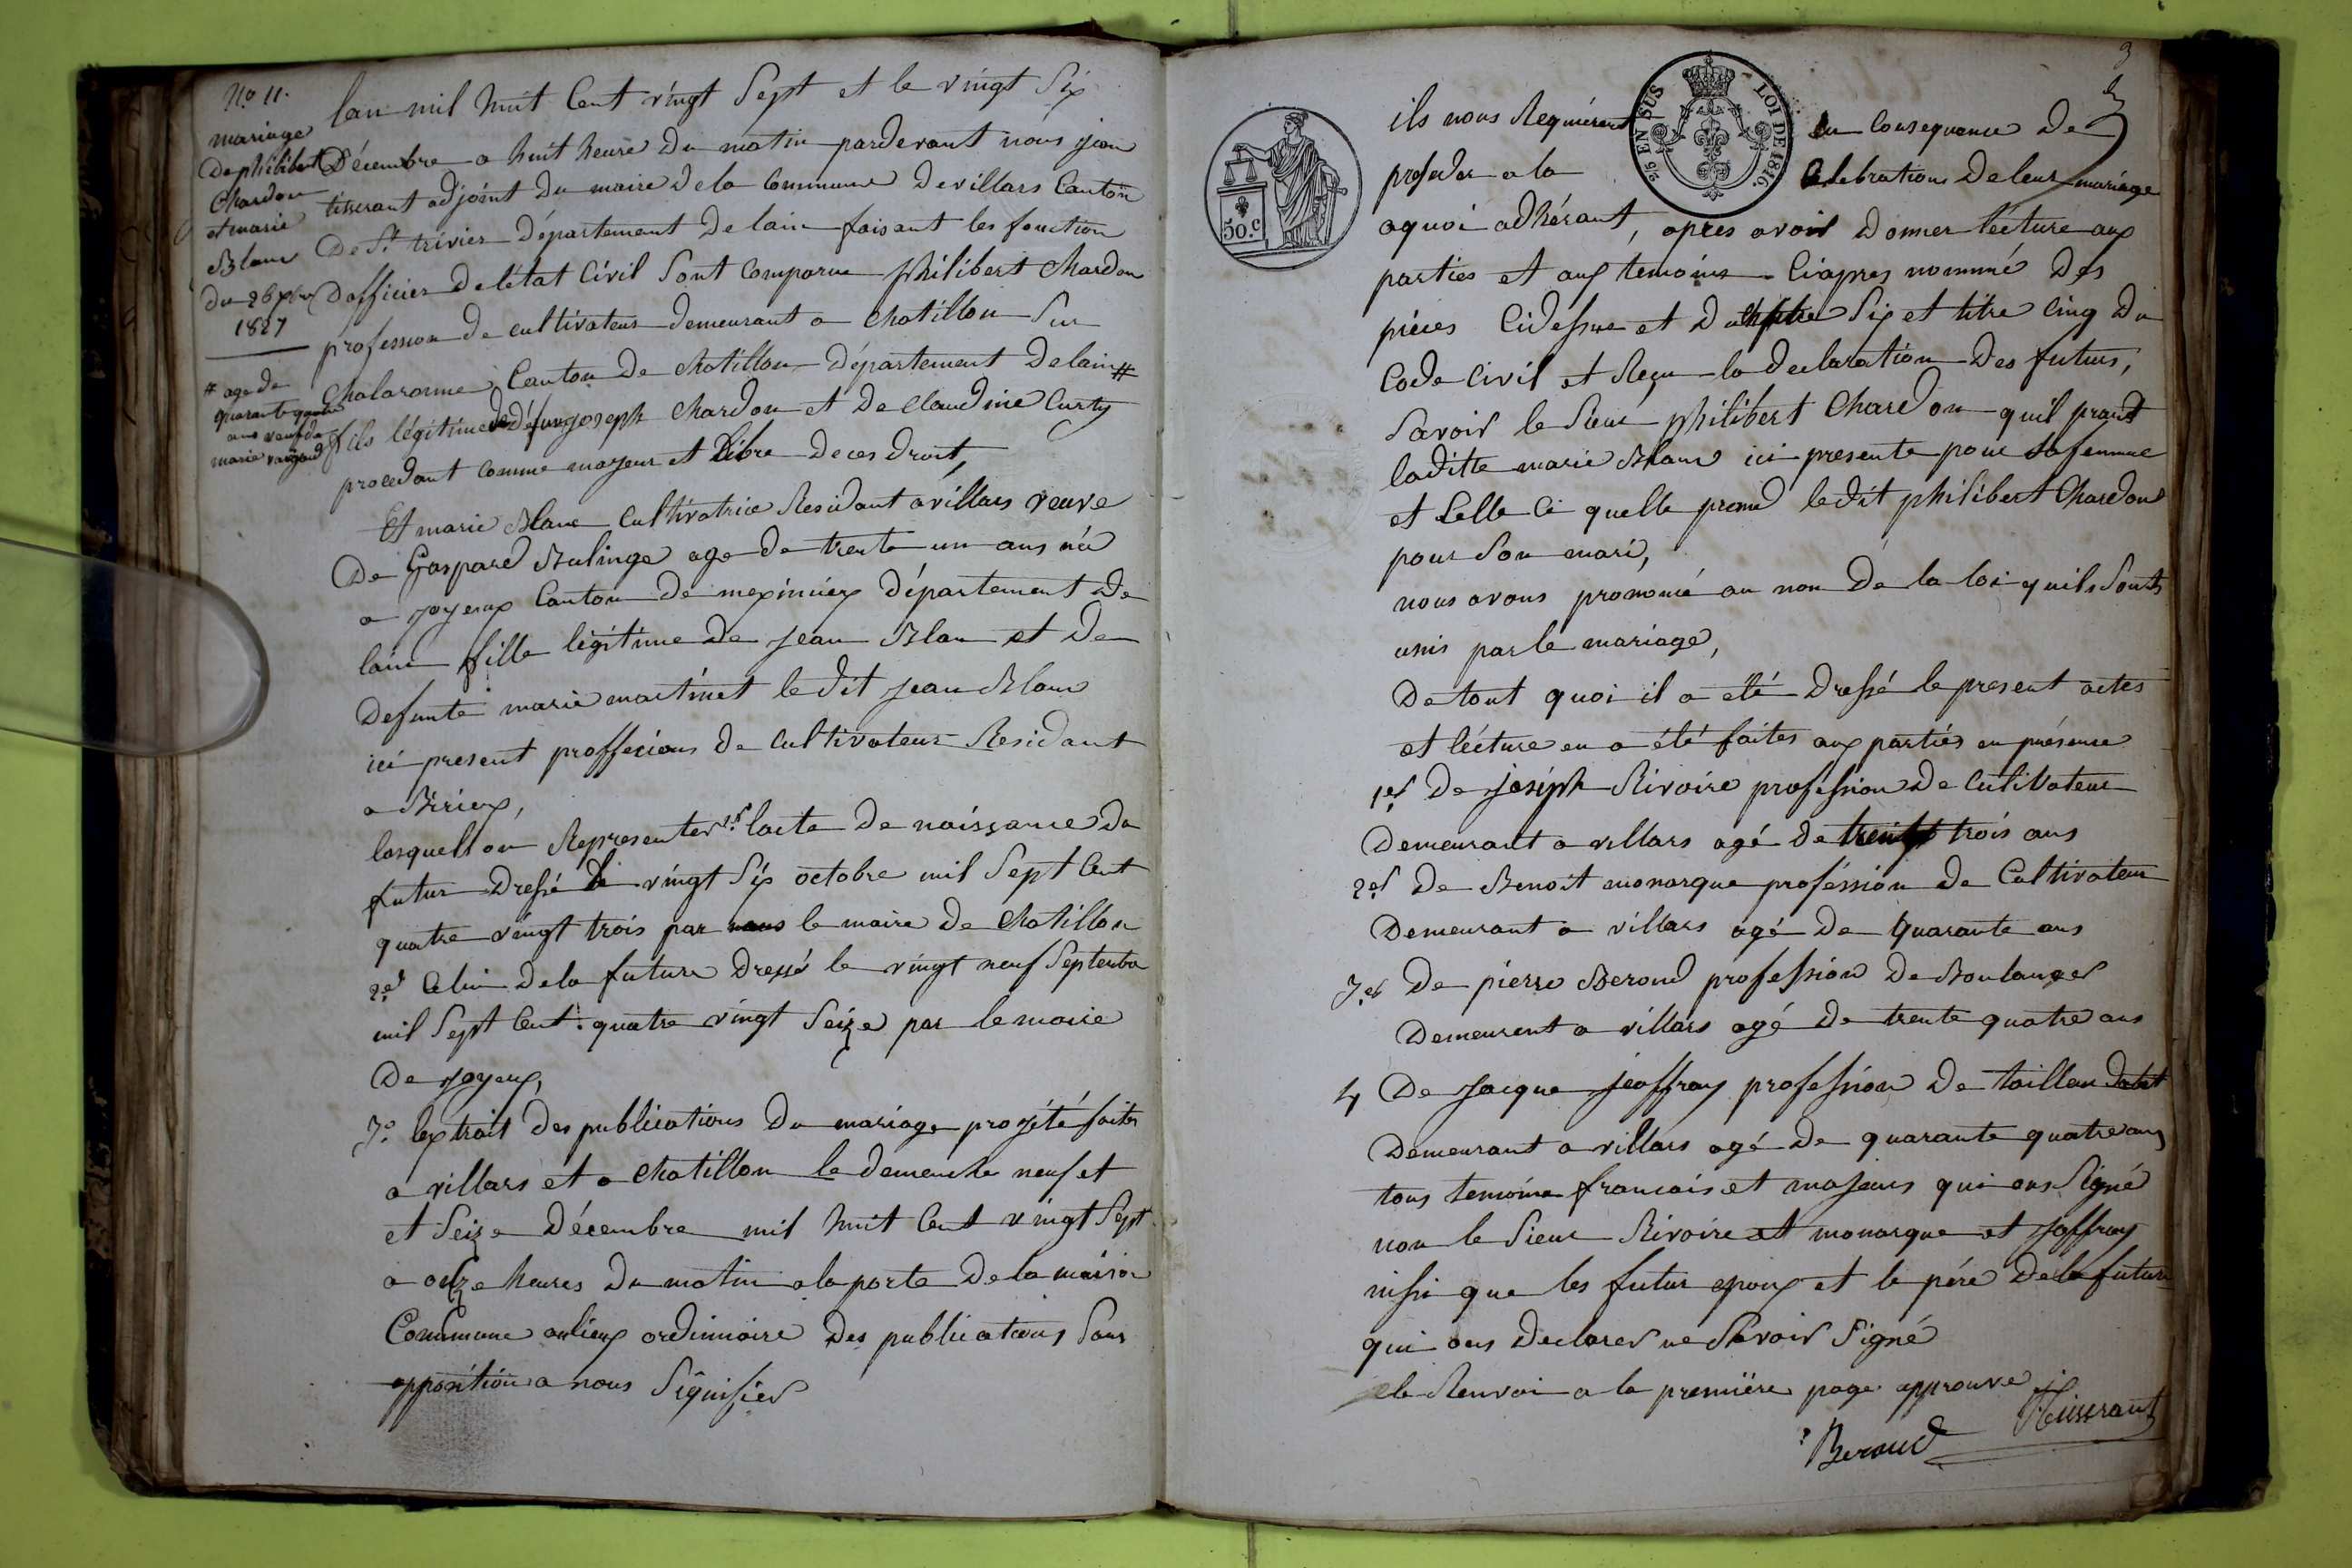 No 11.
mariage
De philibert
Chardon
et marie
Blanc
du 26 xbre
1827
# age de
quarante quatre
ans veuf de
marie
lan mil huit Cent vingt Sept et le vingt Six
Décembre a huit heure du matin pardevant nous jean
tisserant adjoint du maire de la Commune de villars Canton
De St trivier Département De lain faisant les fonction
Dofficier De létat Civil Sont Comparue philibert Chardon
profession de cultivateur demeurant a Chatillon Sur
Chalaronne Canton De Chatillon Département De lain #
fils légitime de défun joseph Chardon et De Claudine Curty
procedant Comme majeur et Libre De ces Droit,
Et marie Blanc Cultivatrice Residant a villars veuve
De Gaspard Bulinge age de trente un ans née
a joyeux Canton De meximieux Département De
lain fille légitime De jean Blan et De
Defunte marie martinet le dit jean Blanc
ici present proffecions De Cultivateur Residant
a Birieux,
lasquell on Representer 1er lacte De naissance du
futur Dressé le vingt Six octobre mil Sept Cent
quatre vingt trois par nous le maire De Chatillon
2er Celui De la future Dressé le vingt neuf Septembre
mil Sept Cent quatre vingt Seize par le maire
De joyeux,
3o lextrait Des publications Du mariage projété faites
a villars et a Chatillon le demenche neuf et
et Seize Décembre mil huit Cent vingt Sept
a onze heures Du matin a la porte De la maison
Commune aulieux ordinaire Des publications Sans
opposition a nous Signifier
3
ils nous Requiérent en Consequence De
proseder a la Celebrations De leur mariage
aquoi adhérant, apres avoir Donner lécture aux
parties et aux temoins Ciapres nommé Des
pièces Cidessue et Du chapitre Six et titre Cinq Du
Code Civil et Reçu la declaration Des futurs,
Savoir le Sieur philibert Chardon quil prand
laditte marie Blanc ici presente pour Safemme
et Celle Ci quelle prend ledit philibert Chardon
pour Son mari,
nous avons prononcé au non De la loi quils Sont
unis par le mariage,
De tout quoi il a été Dressé le present actes
et lécture en a été faites aux partiés en présence
1er De joséph Rivoire profession De Cultivateur
Demeurant a villars agé De trente trois ans
2er De Benoit monarque proféssion De Cultivateur
Demeurant a villars agé De Quarante ans
3er De pierre Beroud profession De Boulanger
Demeurent a villars agé De trente quatre ans
4 De Jacque jeoffray profession De tailleur Dabit
Demeurant a villars agé De quarante quatre ans
tous temoins francais et majeurs qui ons Signé
non le Sieur Rivoire et monarque et joffray
nissi que les futur epoux et le pére De la future
qui ons Declarer ne Savoir Signé
le Renvoi a la première page approuve
Beroud
Tisserant
50.c
2/6 EN SUS
LOI DE 1816